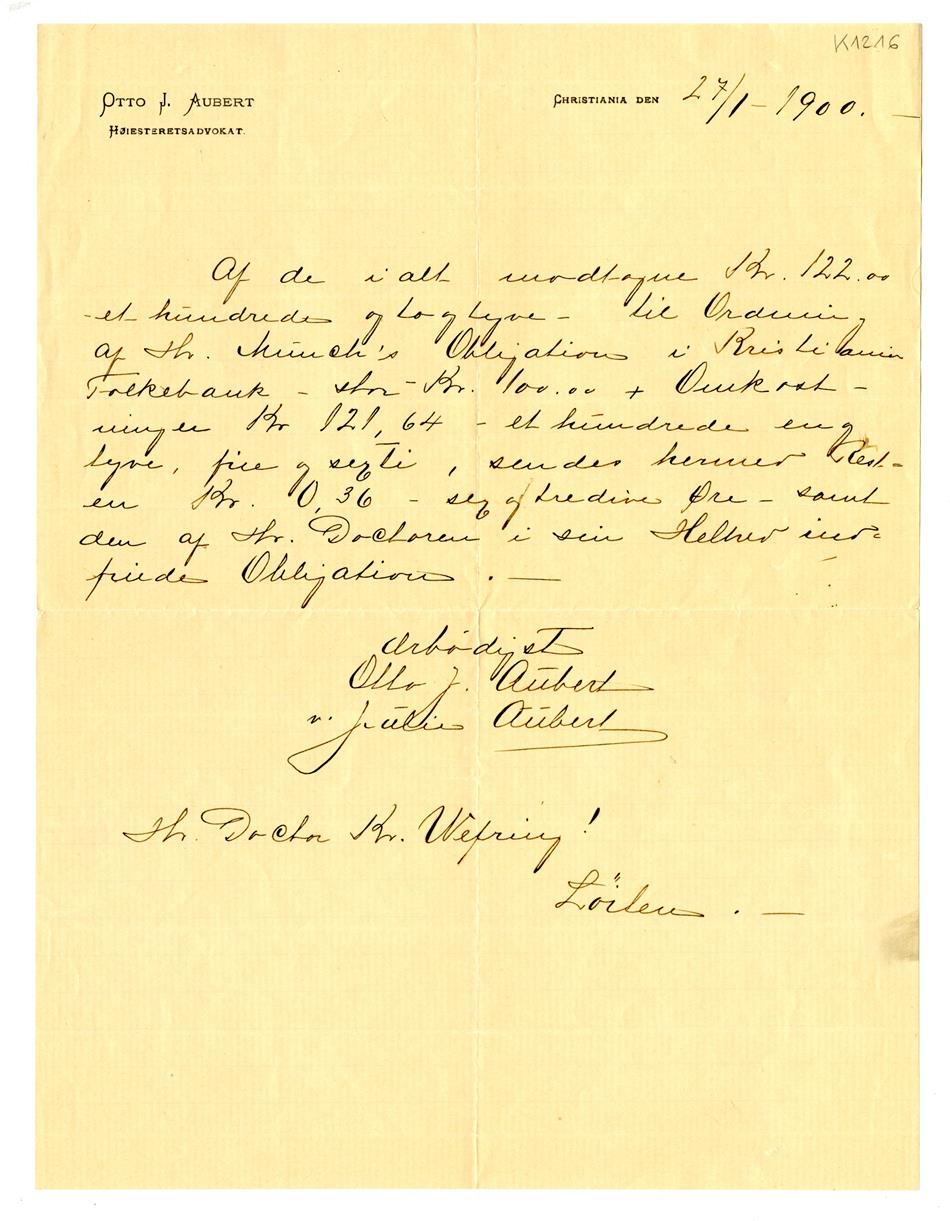 K1216
OTTO J. AUBERT
HØIESTERETSADVOKAT.
CHRISTIANIA DEN 27/1 – 1900. –
Af de ialt modtagne Kr. 122.00
- et hundrede og to og tyve – til Ordning
af Hr. Munch's Obligation i Kristiania
Folkebank – stor Kr. 100.00 + Omkost –
ninger Kr 121,64 – et hundrede en og
tyve, fire og sexti, sendes hermed Rest-
en Kr. 0,36 – sex og tredive Øre – samt
den af Hr. Doctoren i sin Helhed ind=
friede Obligation . —
Ærbødigst
Otto J. Aubert
v. Julie Aubert
Hr. Doctor Kr. Wefring!
Löiten . —